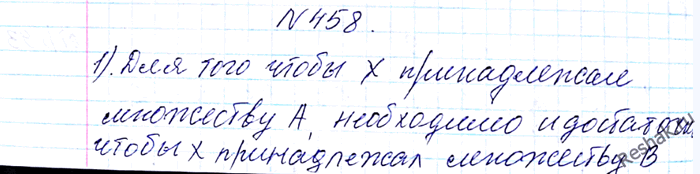 N458.
1). Для того чтобы x принадлежал
множеству A, необходимо и достаточн
чтобы x принадлежал множеству B
Reshak.ru